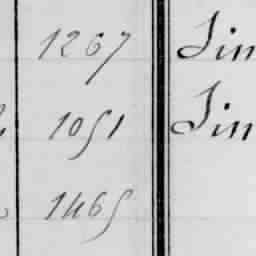 1267 Sin
1051 Sin
1465